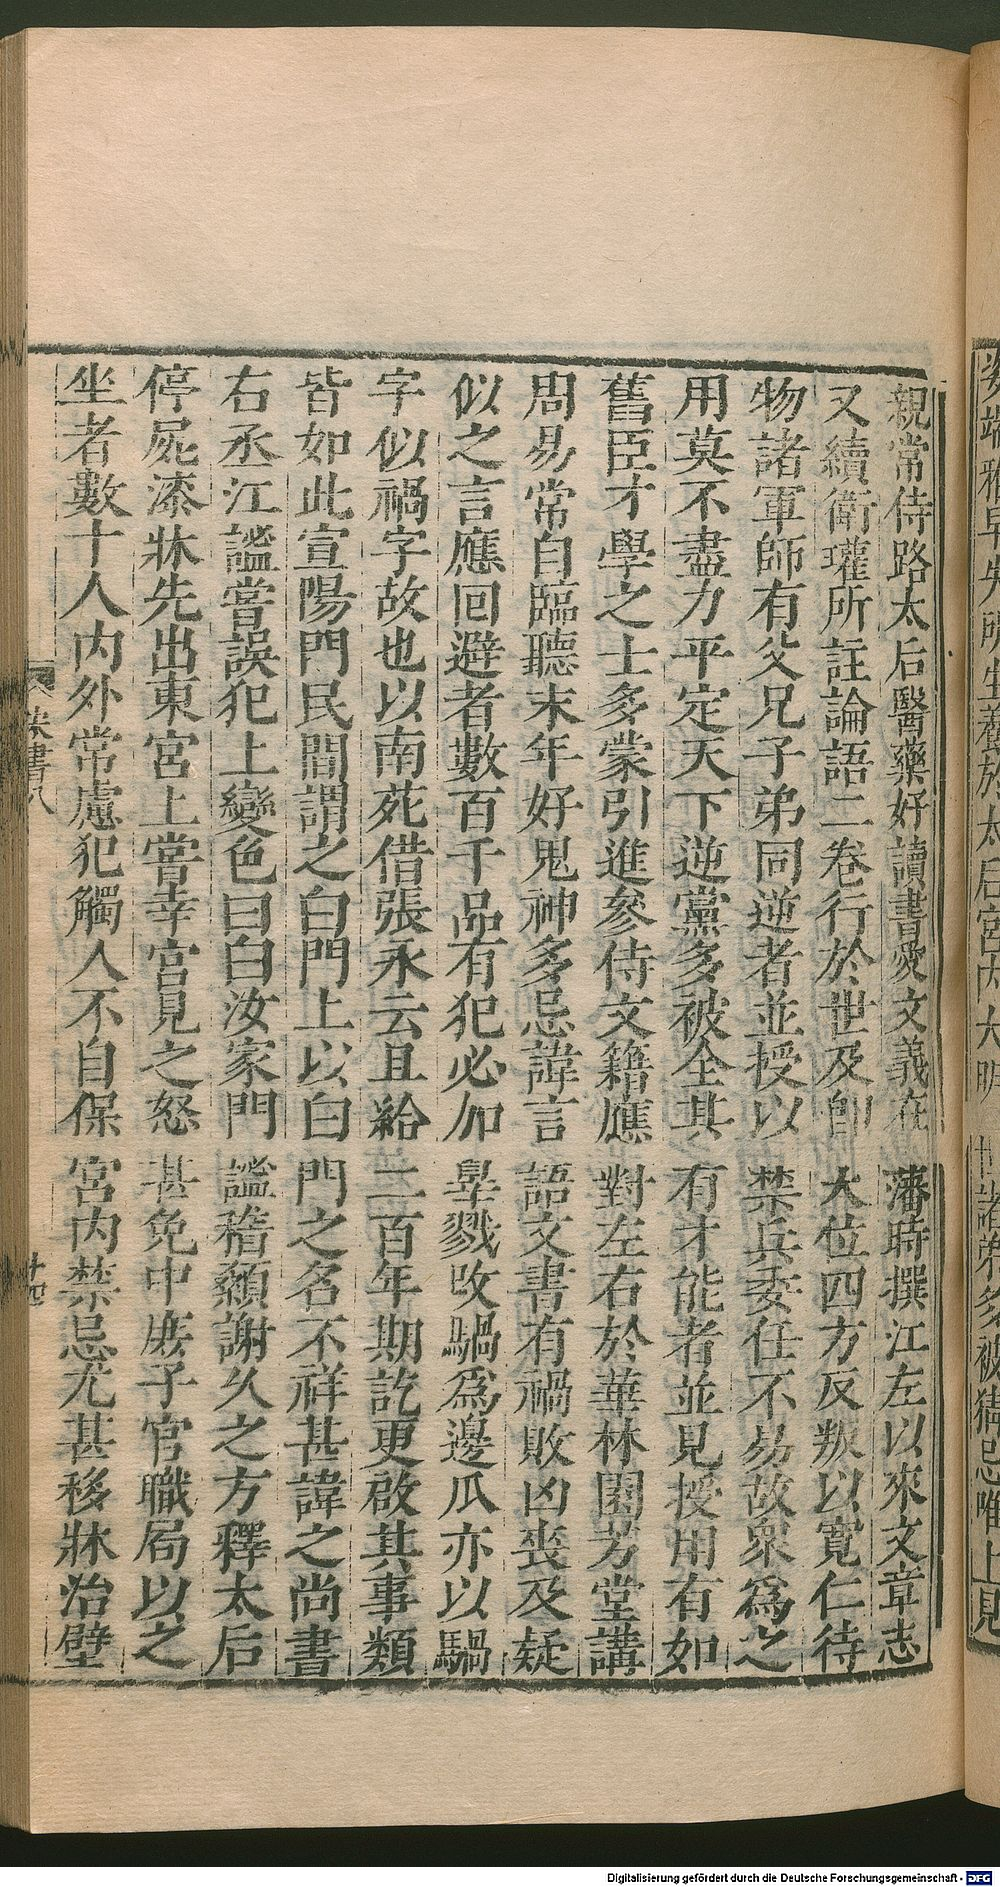 姿端雅早失所生養於太后宮內大明世諸弟多被猜忌唯上見
親常侍路太后醫藥好讀書愛文義在藩時撰江左以來文章志
又續衛瓘所註論語二卷行於世及即大位四方反叛以寬仁待
物諸軍師有父兄子弟同逆者並授以禁兵委任不易故衆爲之
用莫不盡力平定天下逆黨多被全其有才能者並見授用有如
舊臣才學之士多蒙引進參侍文籍應對左右於華林園芳堂講
周易常自臨聽末年好鬼神多忌諱言語文書有禍敗凶喪及疑
似之言應回避者數百千品有犯必加辠戮改騧爲邊瓜亦以騧
字似禍字故也以南苑借張永云且給二百年期訖更啟其事類
皆如此宣陽門民間謂之白門上以白門之名不祥甚諱之尚書
右丞江謐嘗誤犯上變色曰白汝家門謐稽顙謝久之方釋太后
停屍漆牀先出東宮上嘗幸宮見之怒甚免中庶子官職局以之
坐者數十人內外常慮犯觸人不自保宮內禁忌尤甚移牀治壁
宋書八
十四
Digitalisierung gefördert durch die Deutsche Forschungsgemeinschaft - DFG